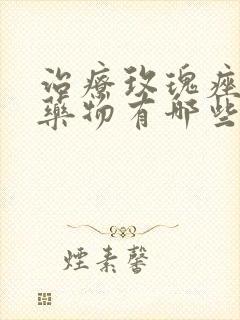 治療玫瑰痤
藥物有哪些
煙素馨